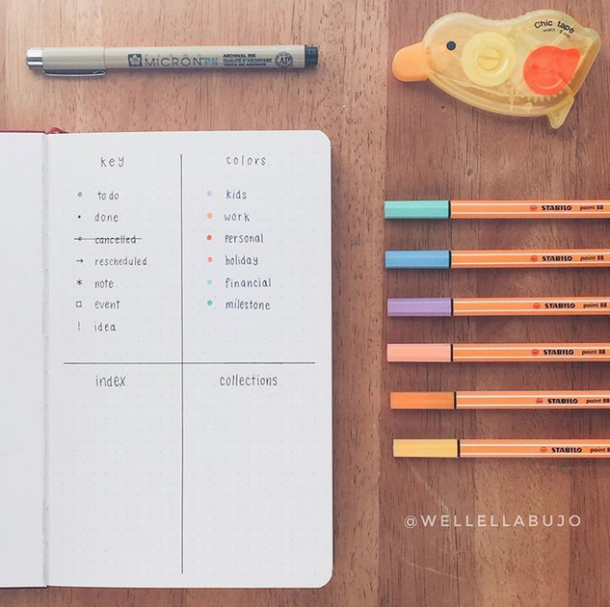 MICRON PN
ARCHIVAL INK
Chic tape
key
to do
done
cancelled
rescheduled
note
event
idea
colors
kids
work
personal
holiday
financial
milestone
index
collections
STABILO point 88
STABILO point 88
STABILO point 88
STABILO point 88
STABILO point 88
STABILO point 88
@WELLELLABUJO